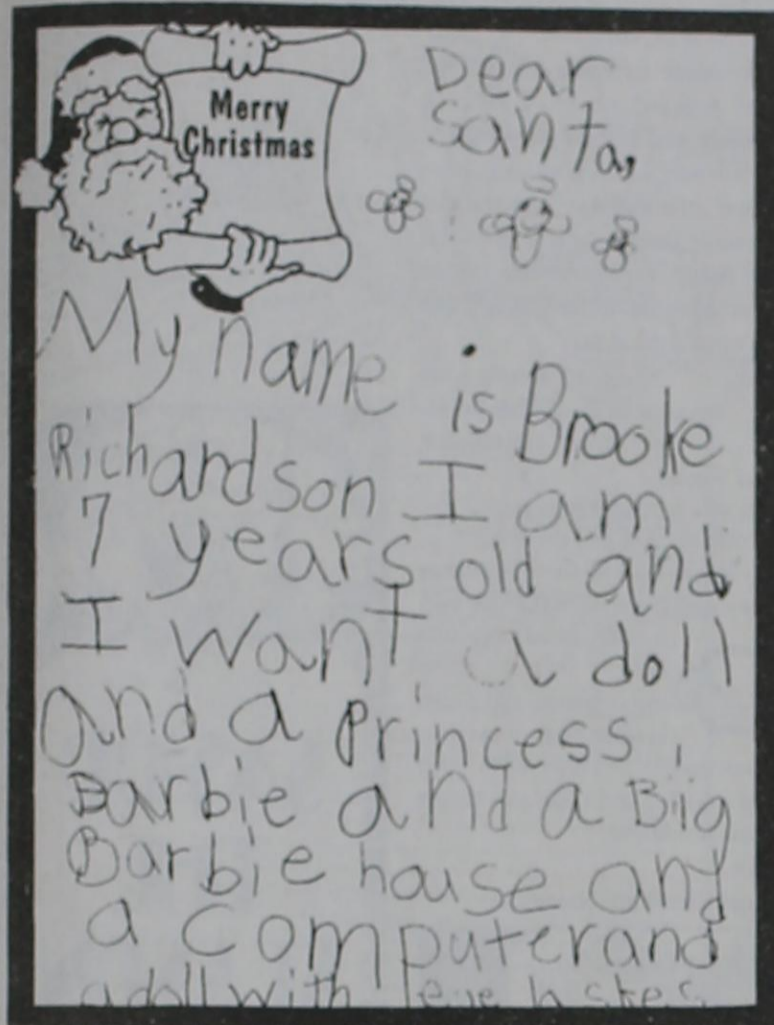 Merry
Christmas
Dear
Santa,
My name is Brooke
Richardson I am
7 years old and
I want a doll
and a Princess
Barbie and a Big
Barbie house and
a computerand
a doll with